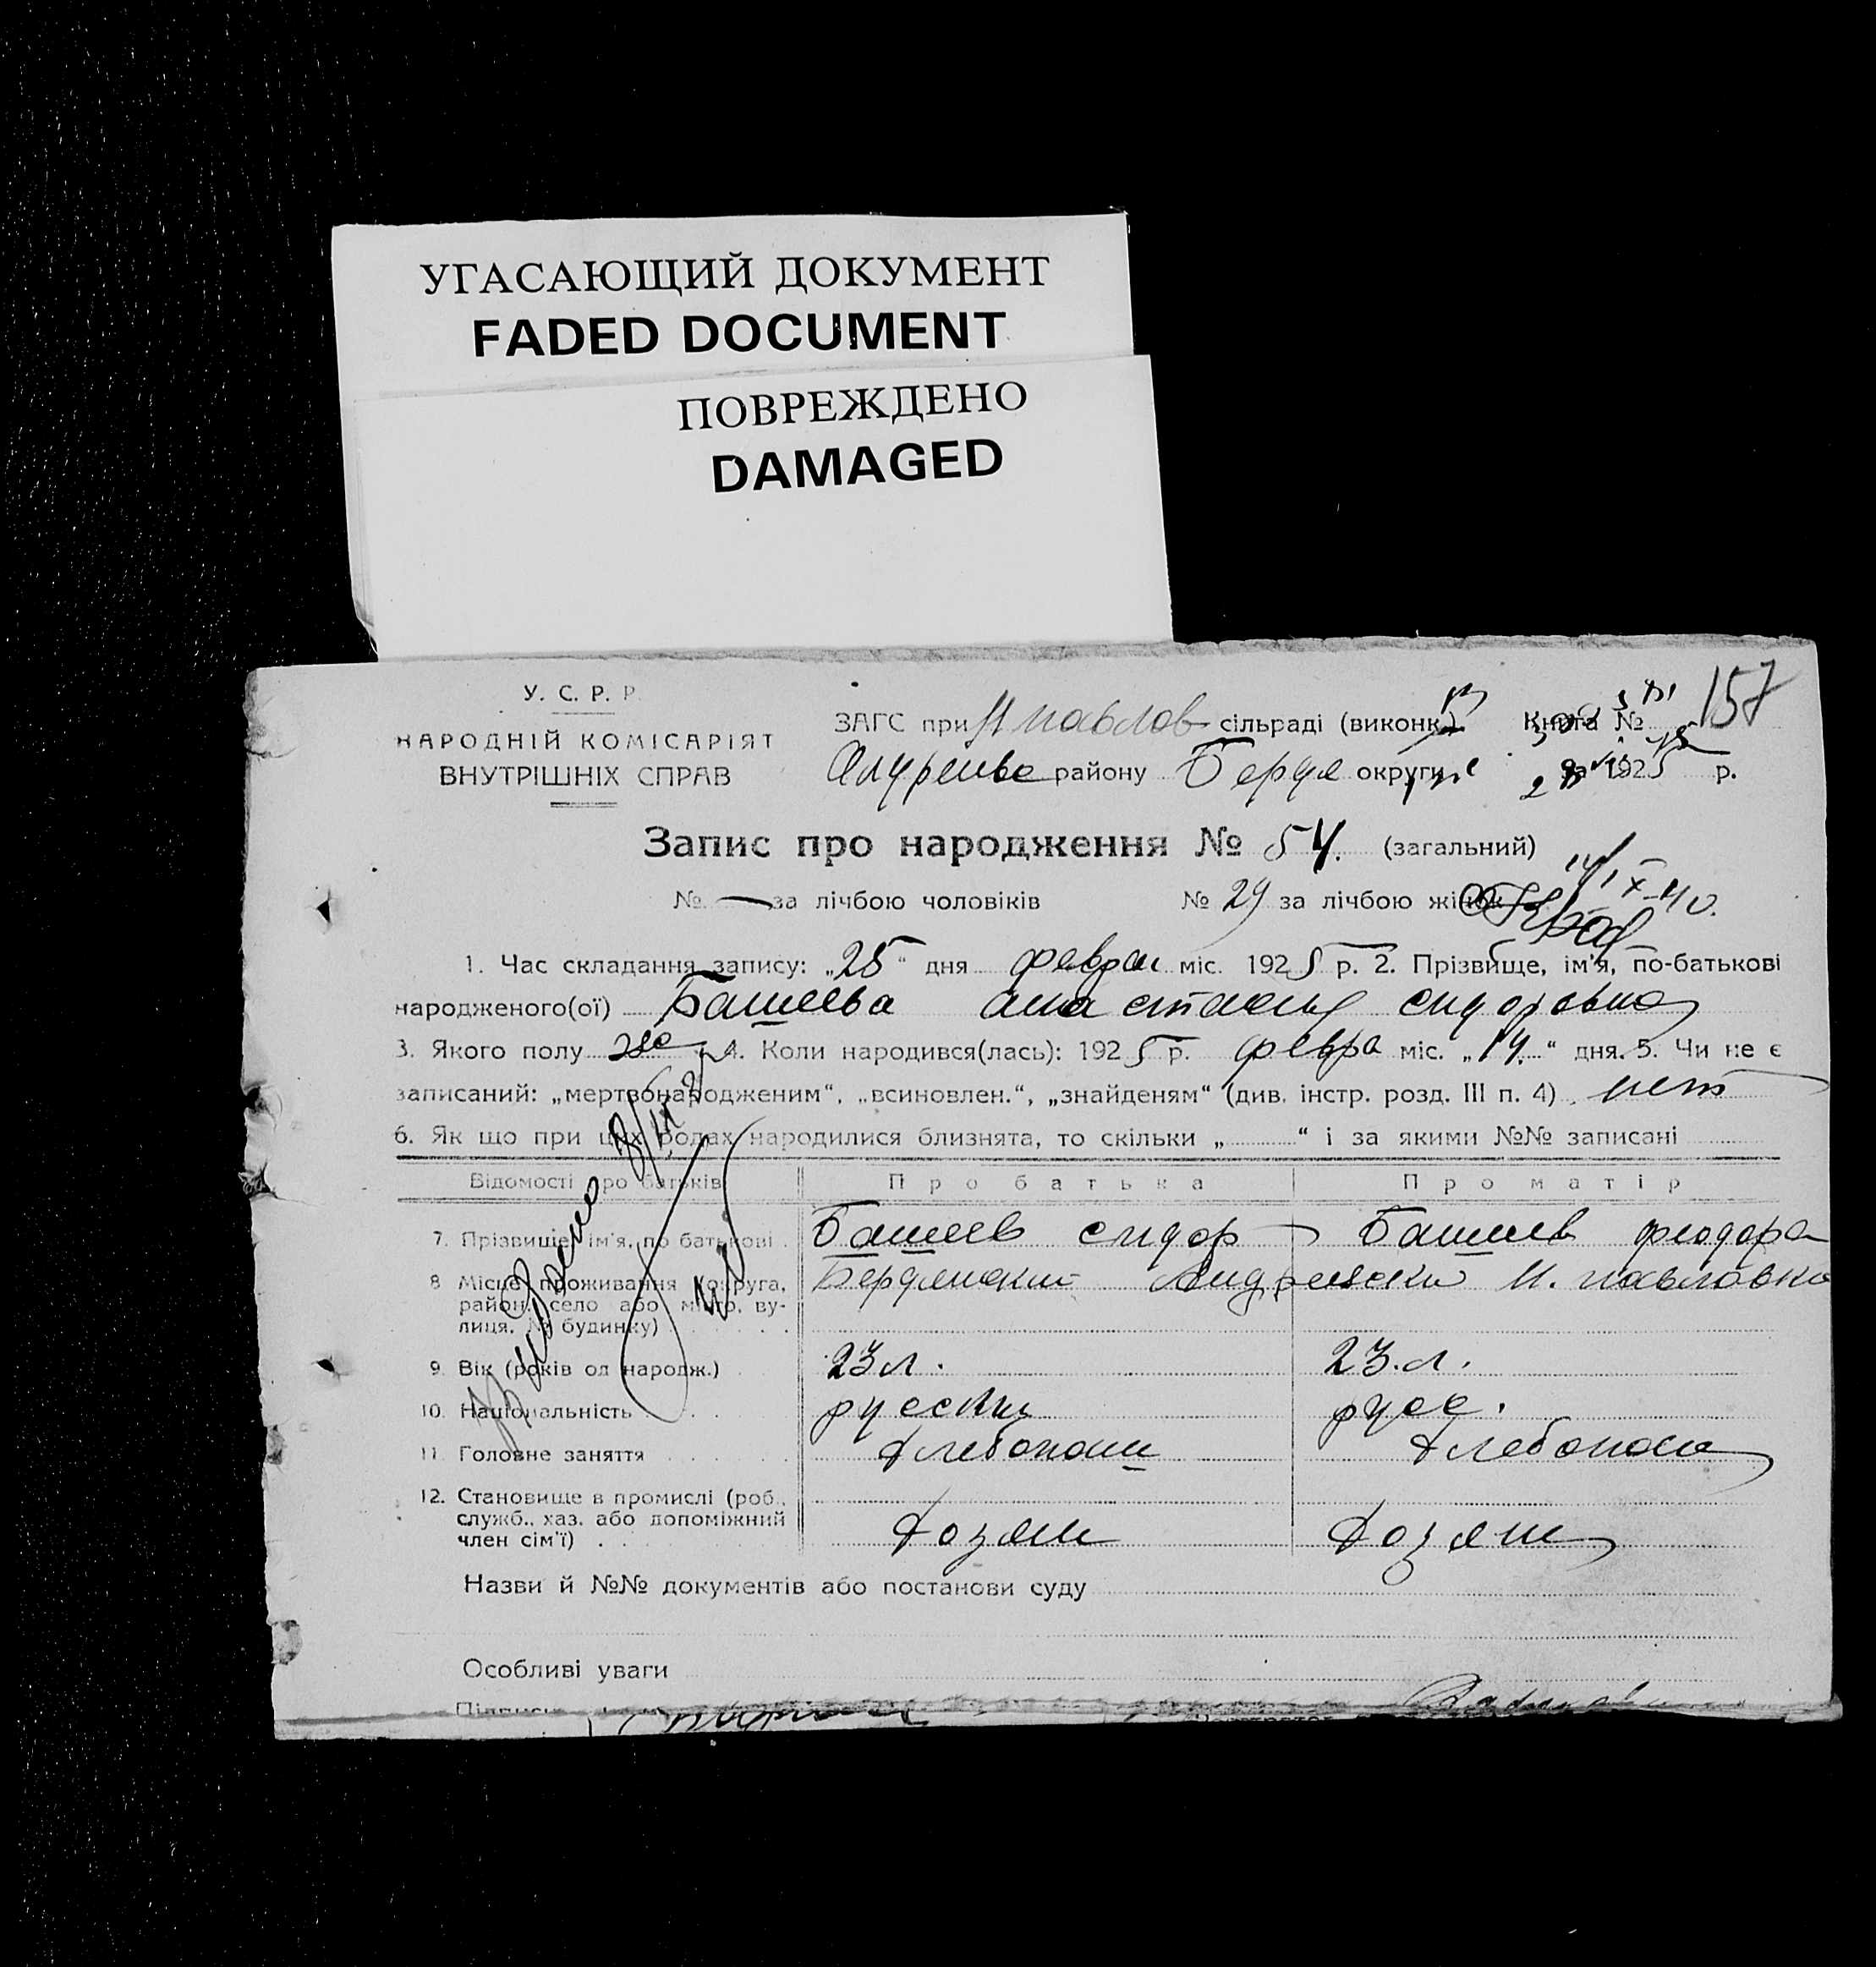 УГАСАЮЩИЙ ДОКУМЕНТ
FADED DOCUMENT
ПОВРЕЖДЕНО
DAMAGED
У. С. Р. Р
НАРОДНІЙ КОМІСАРІЯТ
ВНУТРІШНІХ СПРАВ
157
ЗАГС при Н павлов сільраді (виконк.) Книга №
району Бердя округи за 1925 р.
Запис про народження № 54. (загальний)
№ — за лічбою чоловіків № 29 за лічбою жінок
1. Час складання запису: „25“ дня феврал міс. 1925 р. 2. Прізвище, ім'я, по-батькові
народженого(ої) Башеева анастасия сидоровна
3. Якого полу же 4. Коли народився(лась): 1925 р. февра міс. „14.“ дня. 5. Чи не є
записаний: „мертвонародженим“, „всиновлен.“, „знайденям“ (див. інстр. розд. III п. 4) нет
6. Як що при цих родах народилися близнята, то скільки „ “ і за якими №№ записані
Відомості про батьків Про батька Про матір
7. Прізвище, ім'я, по батькові Башеев сидор Башеев феодора
8 Місце проживання (округа, Бердянский Андреевски Н. павловка
район, село або місто, ву-
лиця, № будинку)
9. Вік (років од народж.) 23 л. 23. л.
10. Національність русский рус.
11. Головне заняття хлебопаш хлебопаш
12. Становище в промислі (роб.,
служб., хаз. або допоміжний
член сім'ї) хозяин хозяин
Назви й №№ документів або постанови суду
Особливі уваги